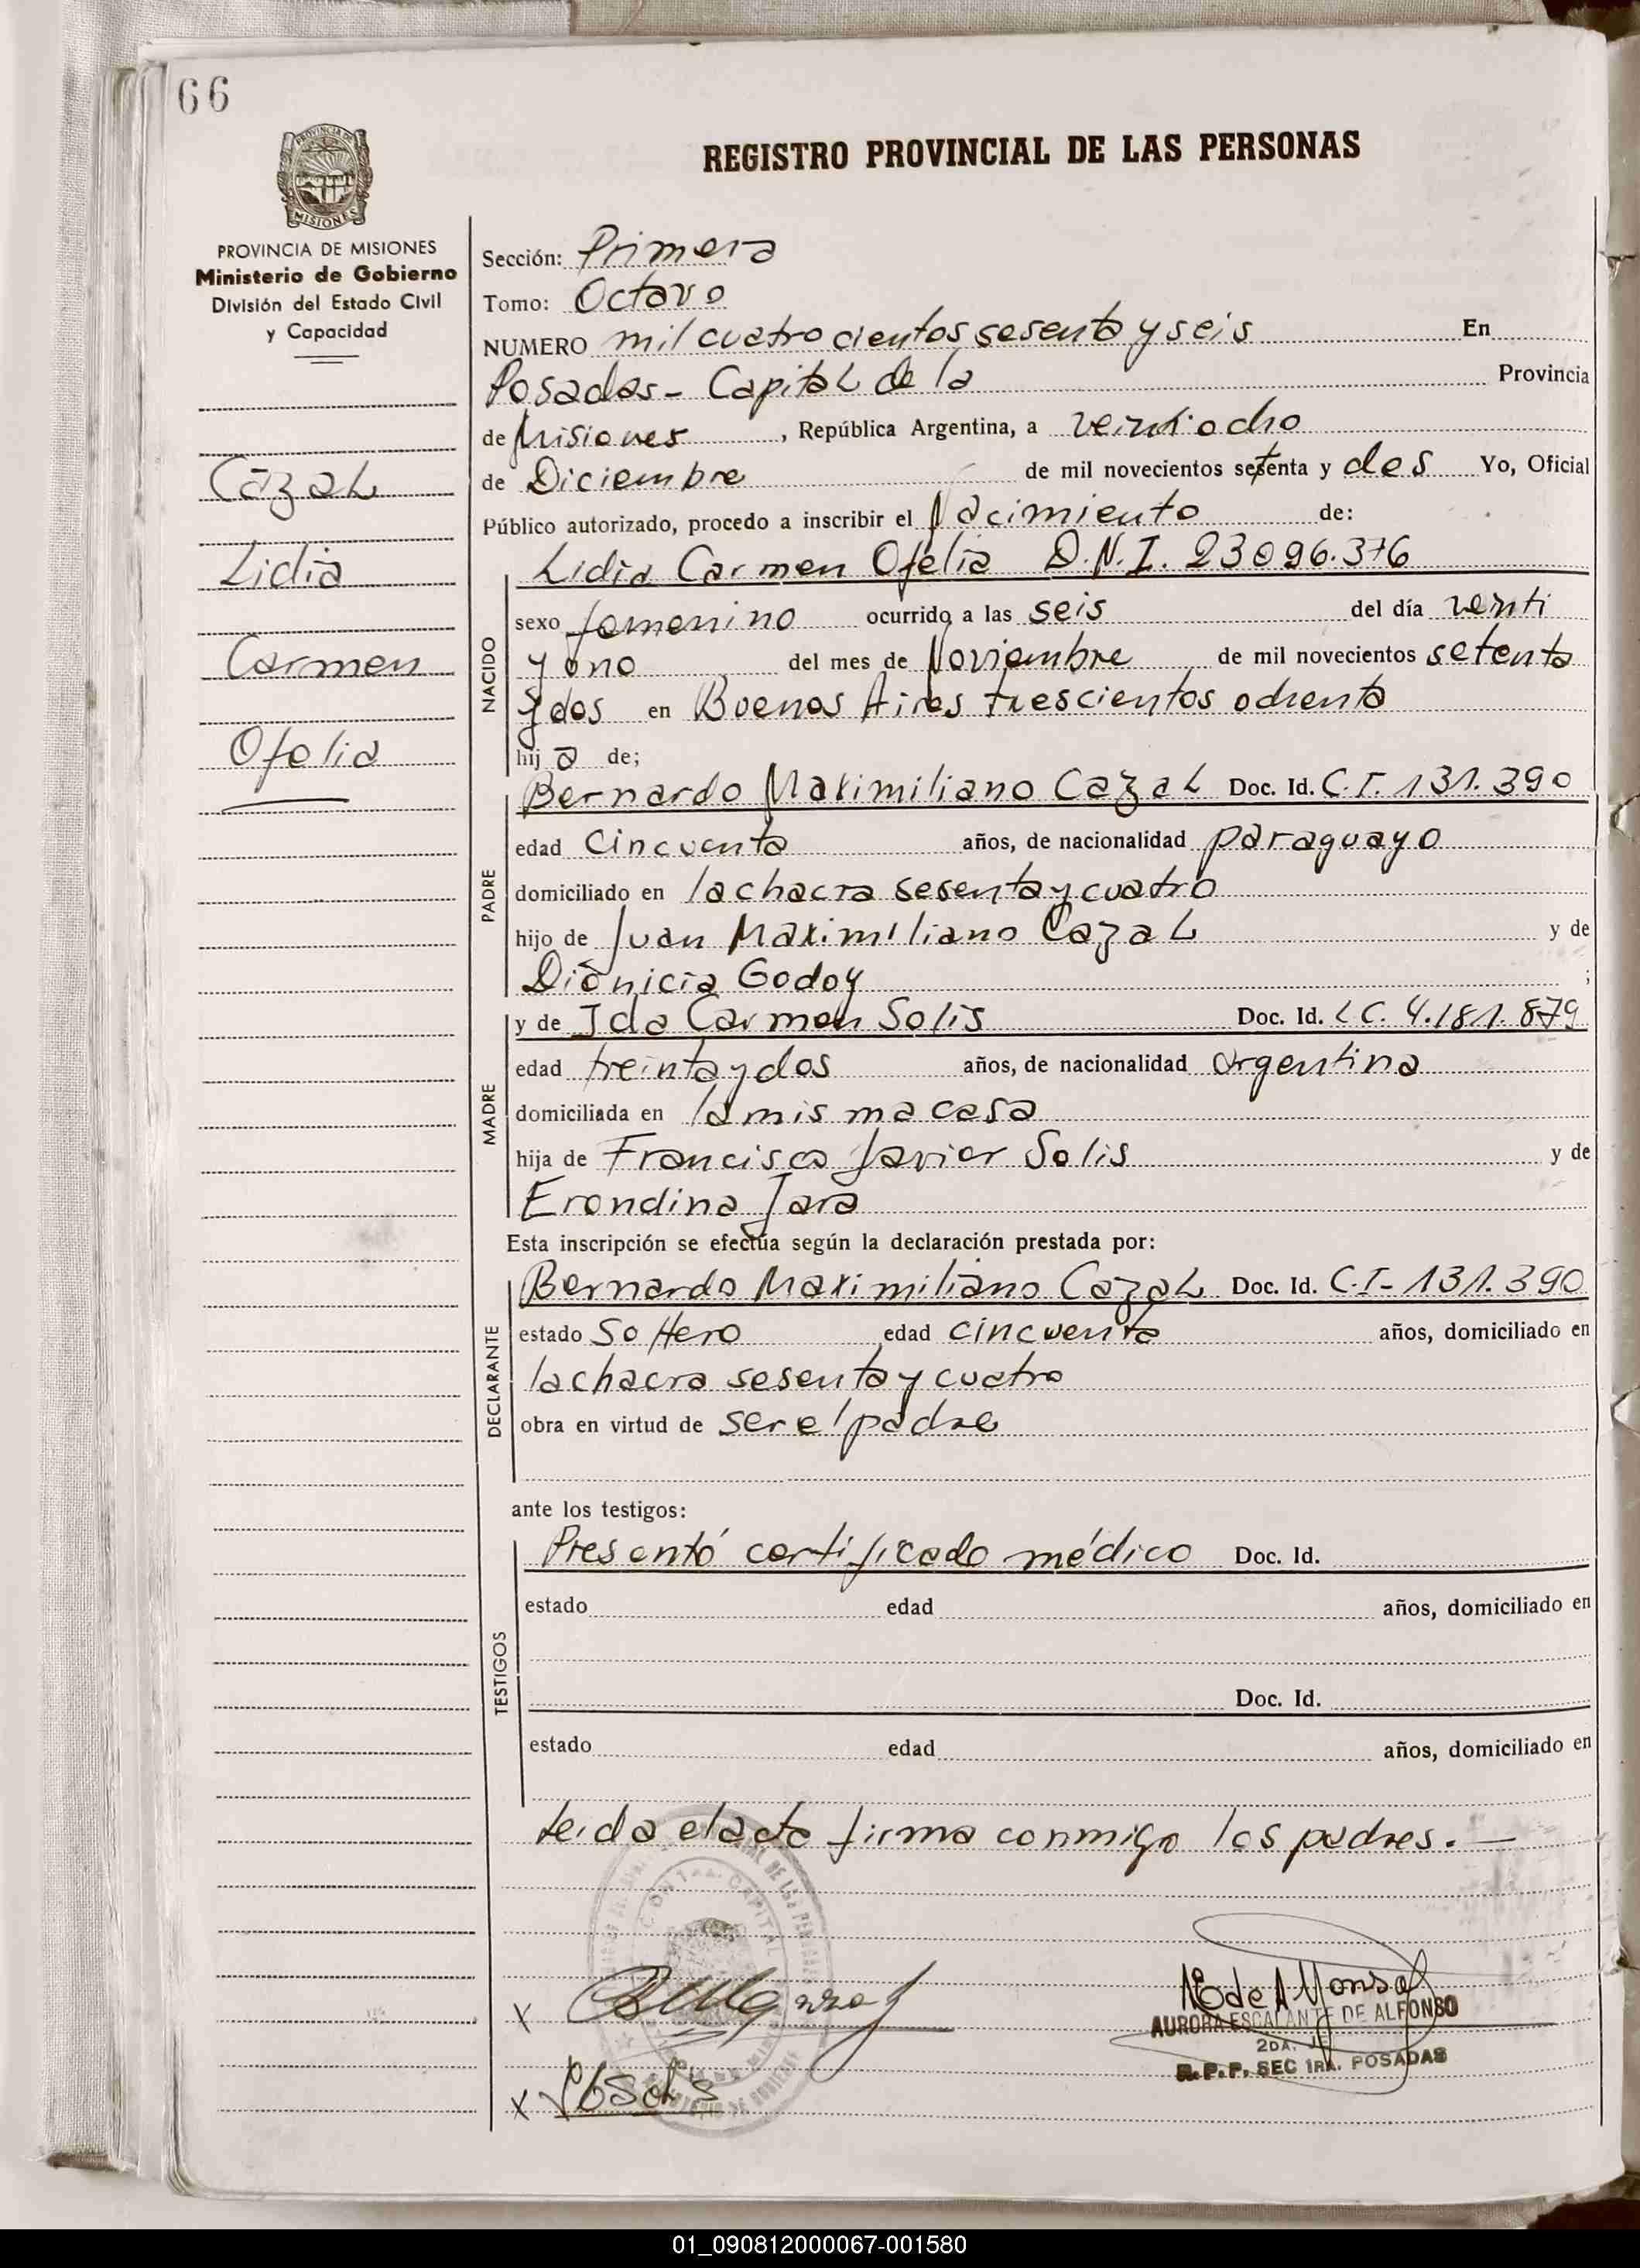 66
PROVINCIA DE MISIONES
Ministerio de Gobierno
División del Estado Civil
y Capacidad
Cazal
Lidia
Carmen
Ofelia
REGISTRO PROVINCIAL DE LAS PERSONAS
Sección: Primera
Tomo: Octavo
NUMERO mil cuatrocientos sesenta y seis En
Posadas - Capital de la Provincia
de Misiones, República Argentina, a veintiocho
de Diciembre de mil novecientos setenta y dos Yo, Oficial
Público autorizado, procedo a inscribir el Nacimiento de:
Lidia Carmen Ofelia D.N.I. 23096.376
NACIDO
sexo femenino ocurrido a las seis del día veinti
y uno del mes de Noviembre de mil novecientos setenta
y dos en Buenos Aires trescientos ochenta
hija de;
PADRE
Bernardo Maximiliano Cazal Doc. Id. C.I. 131.390
edad cincuenta años, de nacionalidad paraguayo
domiciliado en la chacra sesenta y cuatro
hijo de Juan Maximiliano Cazal y de
Dionicia Godoy ;
MADRE
y de Ida Carmen Solis Doc. Id. LC. 4.181.879
edad treinta y dos años, de nacionalidad argentina
domiciliada en la misma casa
hija de Francisco Javier Solis y de
Erondina Jara
Esta inscripción se efectúa según la declaración prestada por:
DECLARANTE
Bernardo Maximiliano Cazal Doc. Id. C.I- 131.390
estado soltero edad cincuenta años, domiciliado en
la chacra sesenta y cuatro
obra en virtud de ser el padre
ante los testigos:
TESTIGOS
Presentó certificado médico Doc. Id.
estado edad años, domiciliado en
Doc. Id.
estado edad años, domiciliado en
Leida el acta firma conmigo los padres.-
AURORA ESCALANTE DE ALFONSO
2DA. JE
R.P.P. SEC 1RA. POSADAS
01_090812000067-001580